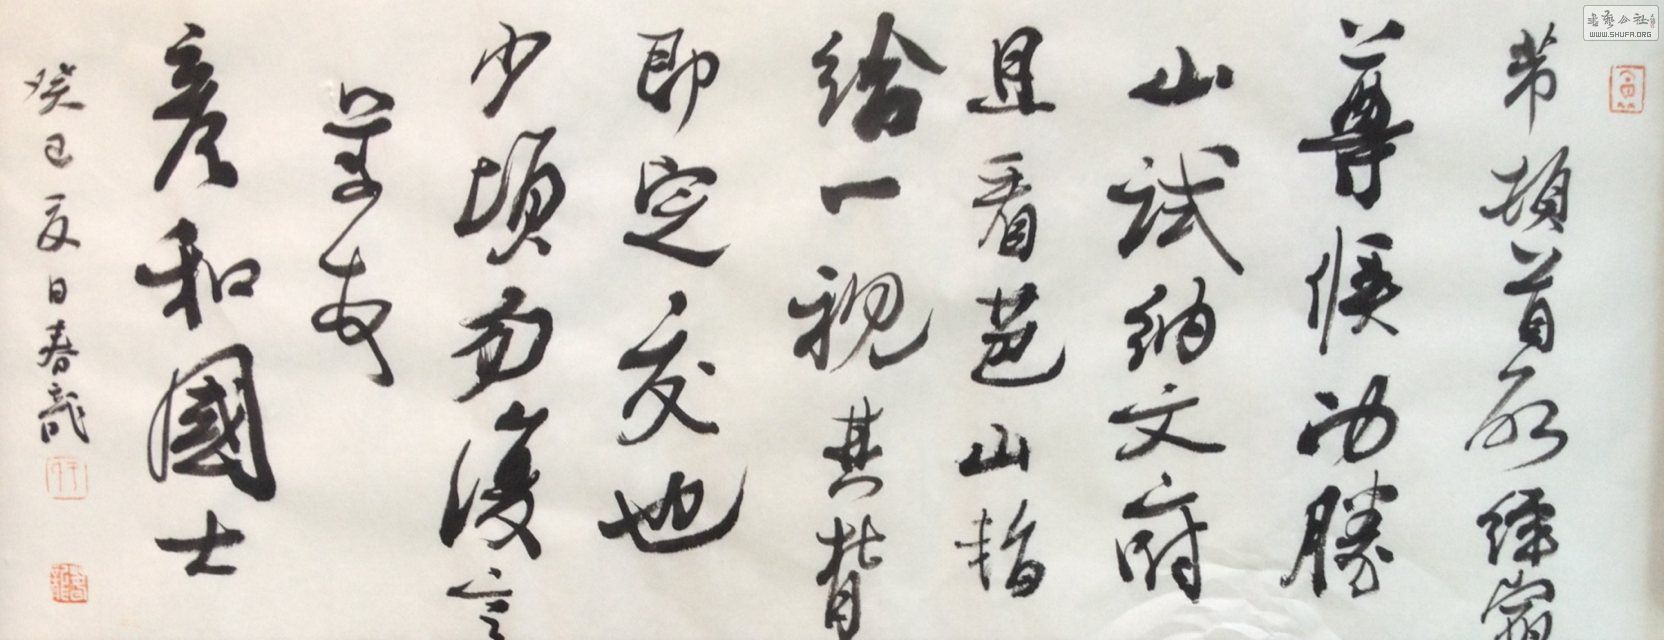 書藝公社
WWW.SHUFA.ORG
芾頓首啟經宿
尊候沖勝
山試納文府
且看芭山暫
給一視其背
即定交也
少頃勿復言
芾頓首
彥和國士
癸巳夏日春龍